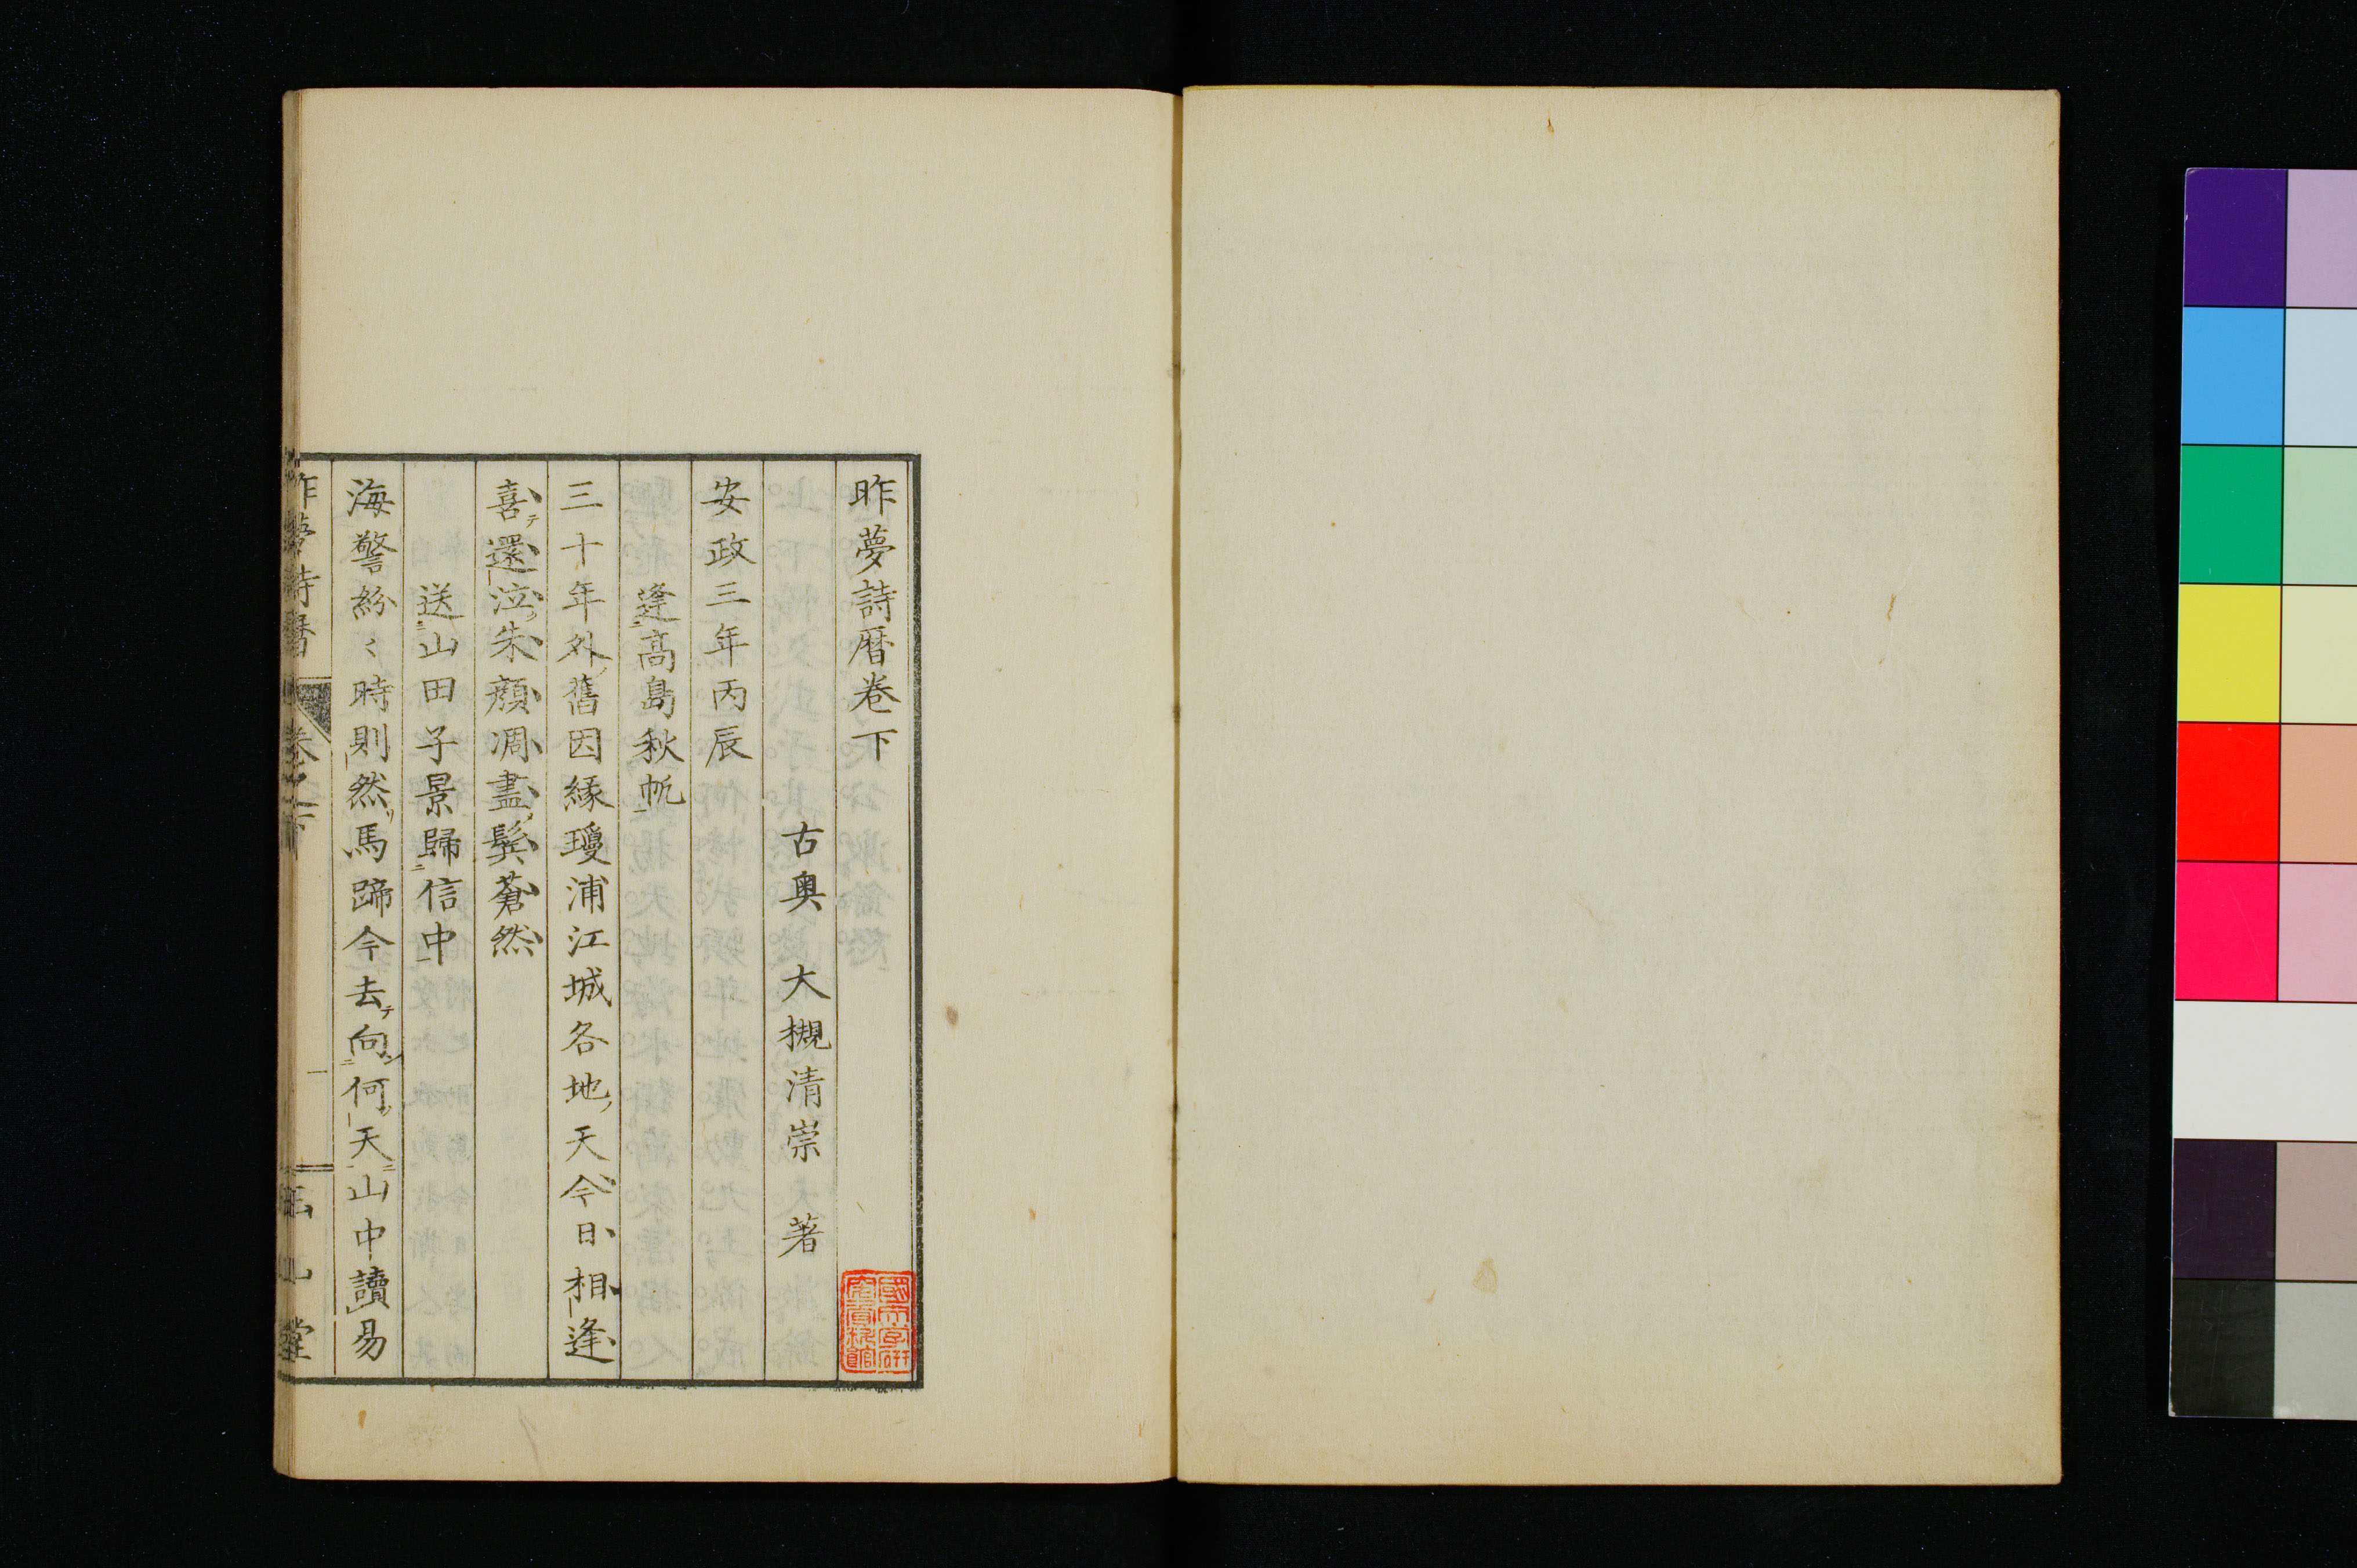 昨夢詩暦卷下
古奥 大槻清崇 著
安政三年丙辰
逢高島秋帆
三十年外舊因縁瓊浦江城各地天今日相逢
喜還泣朱顔凋盡鬂蒼然
送山田子景歸信中
海警紛〻時則然馬蹄今去向何天山中讀易
昨夢詩暦 卷之下 一
堂
國文學研究資料館